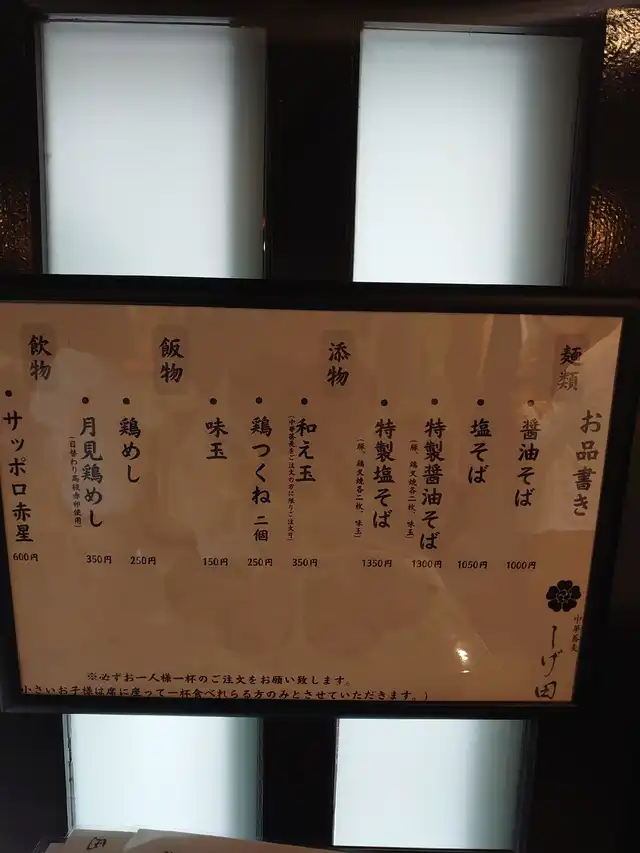 お品書き
中華蕎麦
しげ田
麺類
醤油そば 1000円
塩そば 1050円
特製醤油そば
(豚、鶏叉焼各二枚、味玉)
1300円
特製塩そば
(豚、鶏叉焼各二枚、味玉)
1350円
添物
和え玉
(中華蕎麦をご注文の方に限りご注文可)
350円
鶏つくね 二個 250円
味玉 150円
飯物
鶏めし 250円
月見鶏めし
(日替わり高級赤卵使用)
350円
飲物
サッポロ赤星 600円
※必ずお一人様一杯のご注文をお願い致します。
小さいお子様は席に座って一杯食べれらる方のみとさせていただきます。)